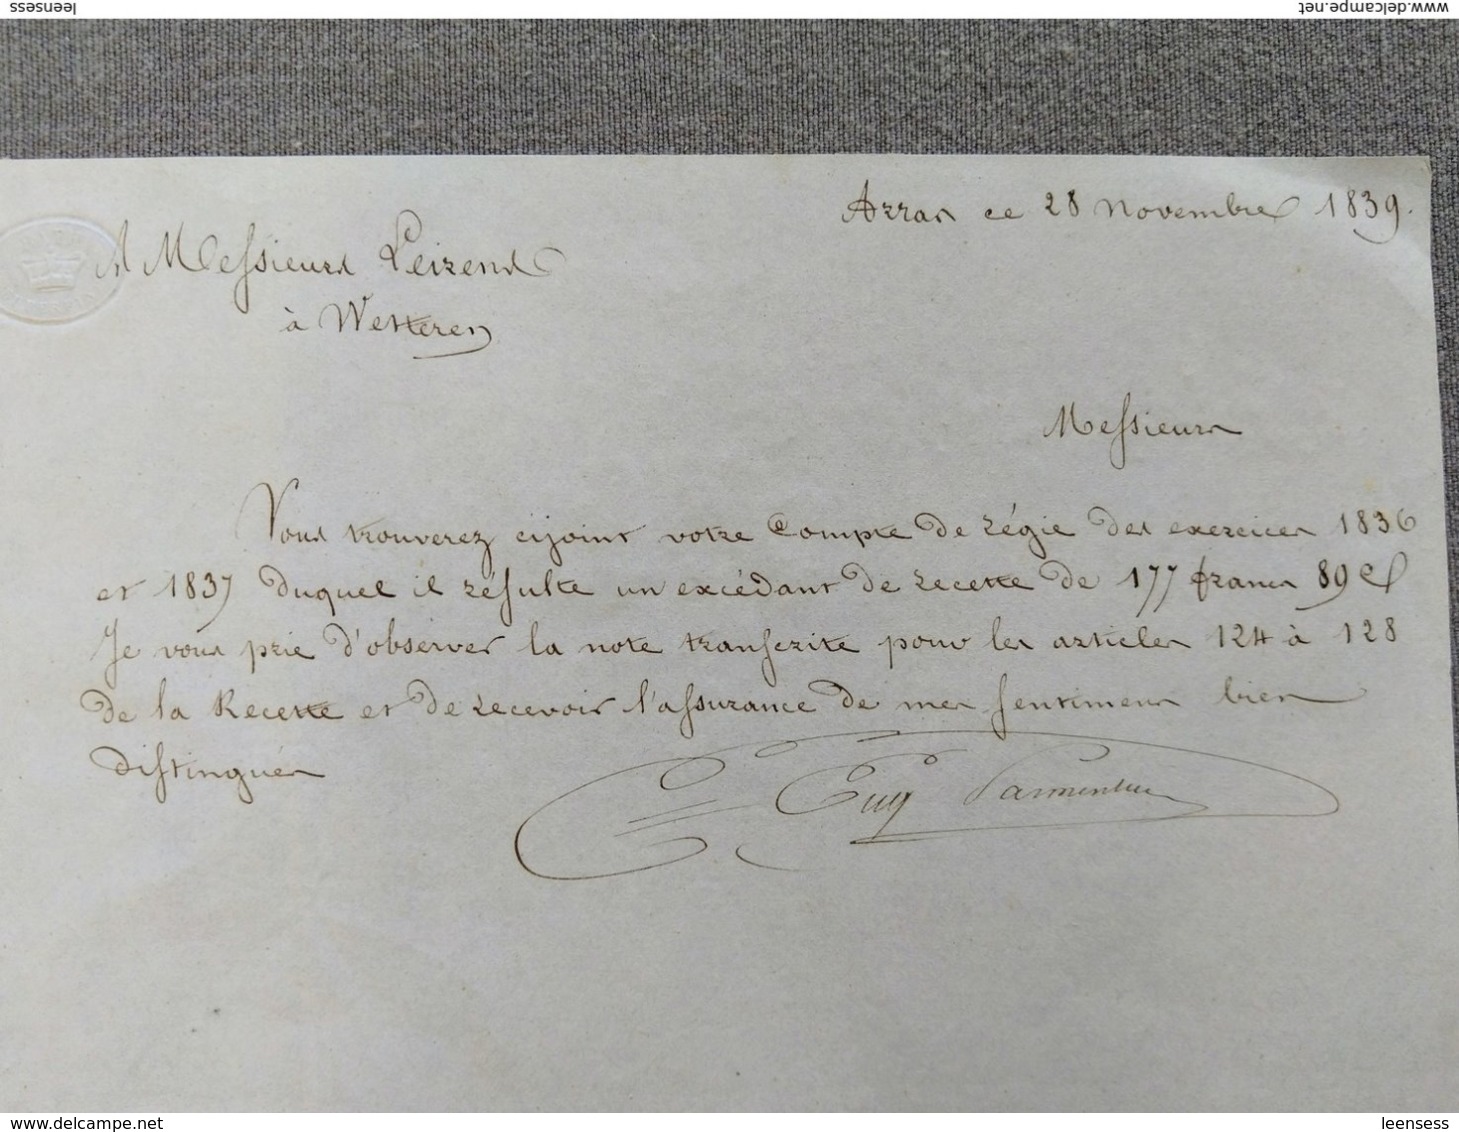 www.delcampe.net
leensess
Arras ce 28 Novembre 1839.
A Messieurs Peirens
à Wetteren
Messieurs
Vous trouverez cijoint votre Compte de régie des exercices 1836
et 1837 duquel il résulte un excédant de recette de 177 francs 89 c
Je vous prie d'observer la note transcrite pour les articles 124 à 128
de la Recette et de recevoir l'assurance de mes sentimens bien
distingués
Eug Parmentier
www.delcampe.net
leensess